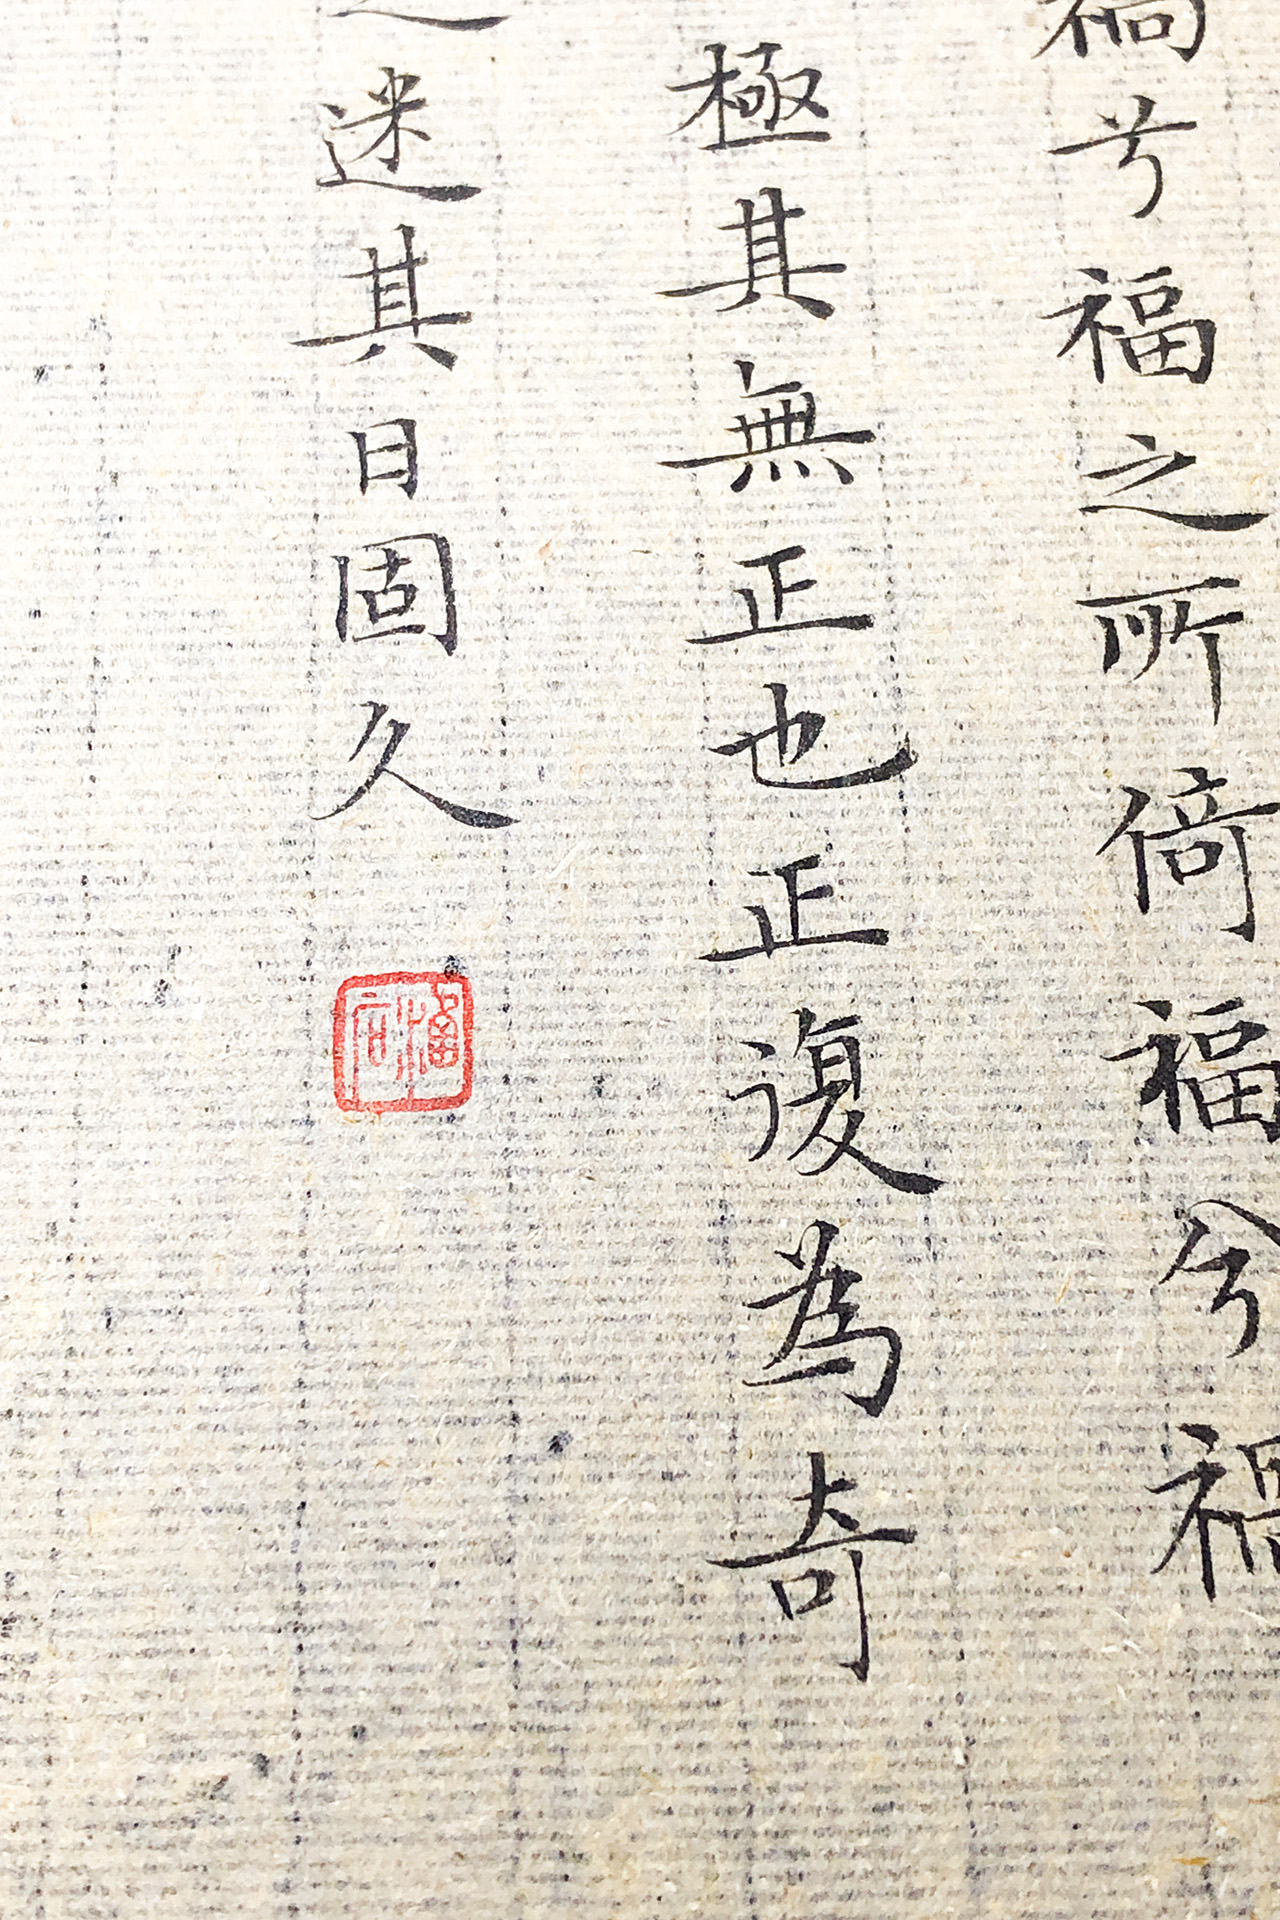 禍兮福之所倚福兮禍
極其無正也正復為奇
迷其日固久